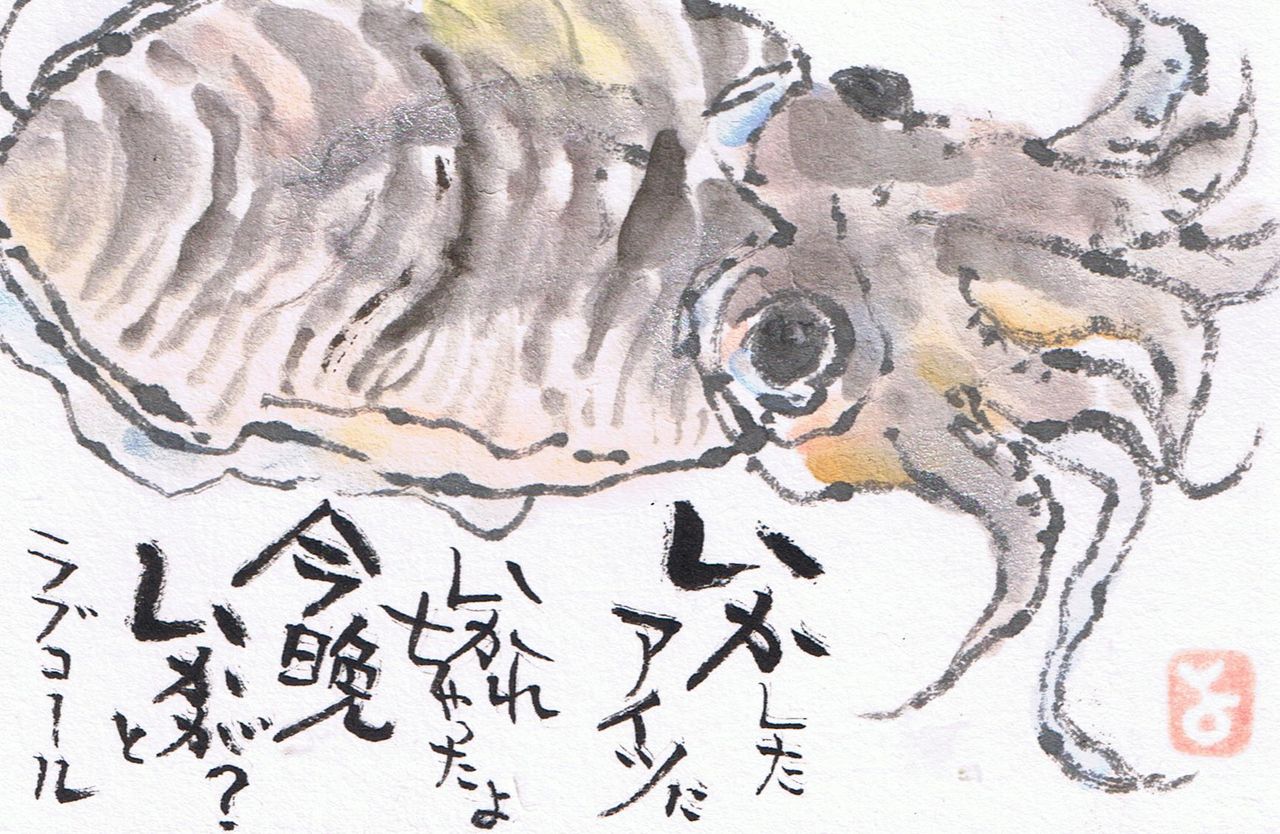 いかした
アイツに
いかれ
ちゃったよ
今晩
いかが？
と
ラブコール
とよ